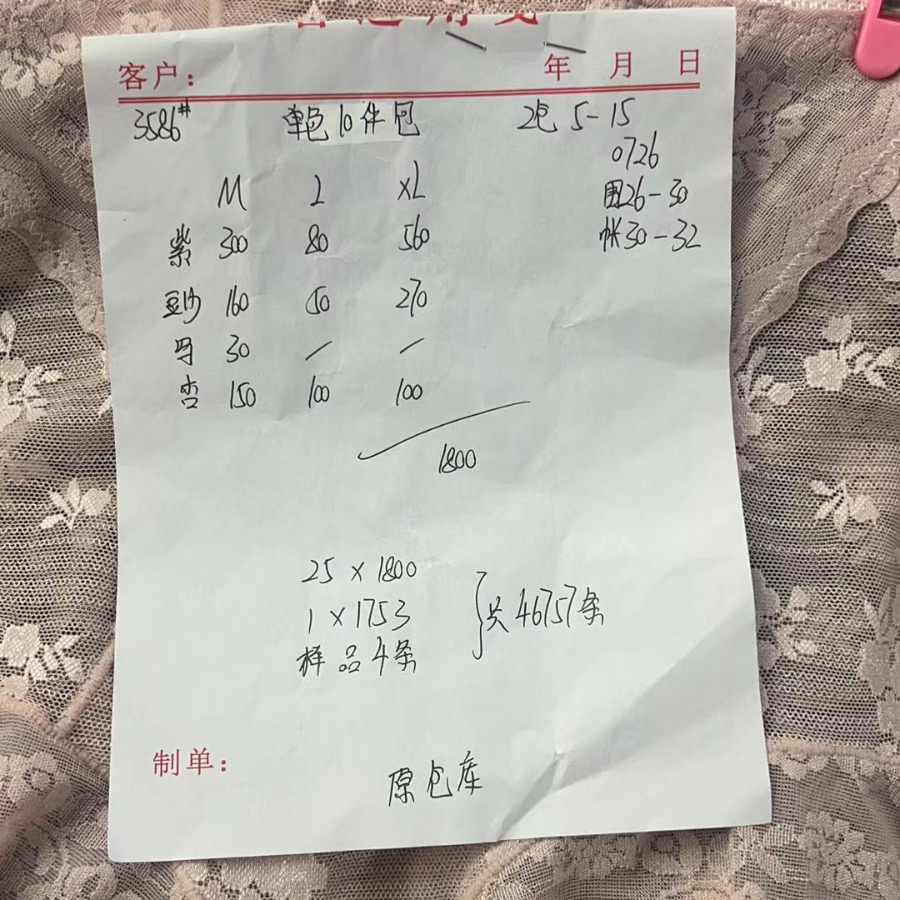 客户： 年 月 日
3586# 单色10件包 2包 5-15
0726
围26-30
M L XL
紫 300 80 560
长30-32
豆沙 160 50 270
玛 30 / /
杏 150 100 100
1800
25 x 1800
1 x 1753
样品4条
}共46757条
制单：
原包库